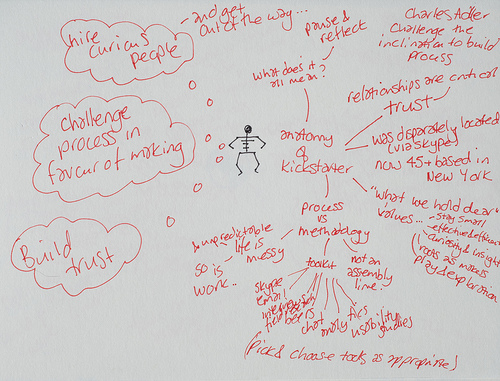 hire
curious
people
- and get
out of the way...
challenge
process in
favour of making
Build
trust
pause &
reflect
what does it
all mean?
Charles Adler
Challenge the
inclination to build
process
relationships are critical
trust
anatomy
of
kickstarter
was disparately located
(via skype)
now 45+ based in
New York
"what we hold dear"
values...
- stay small
- effective & efficient
- curiosity & insight
roots as makers
play & exploration
process
vs
methodology
life is
messy
& unpredictable
so is
work..
toolkit
not an
assembly
line.
skype
email
field
beers
chat
fics
usability
studies
(Pick & choose tools as appropriate)